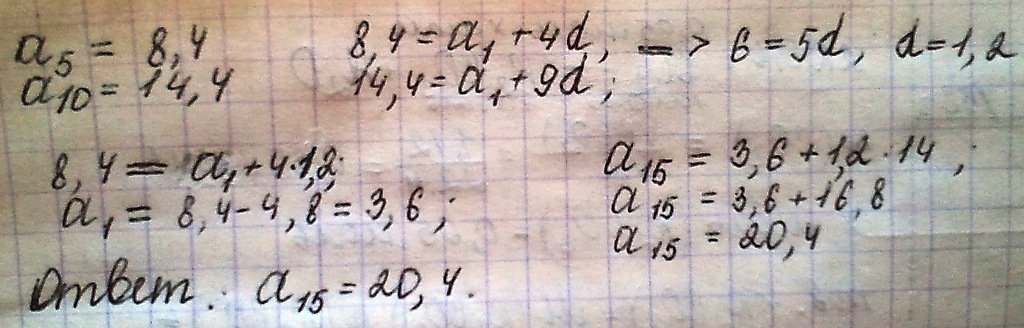 a₅ = 8,4
a₁₀ = 14,4
8,4 = a₁ + 4d; => 6 = 5d, d = 1,2
14,4 = a₁ + 9d;
8,4 = a₁ + 4·1,2;
a₁ = 8,4 - 4,8 = 3,6;
a₁₅ = 3,6 + 1,2·14;
a₁₅ = 3,6 + 16,8
a₁₅ = 20,4
Ответ: a₁₅ = 20,4.